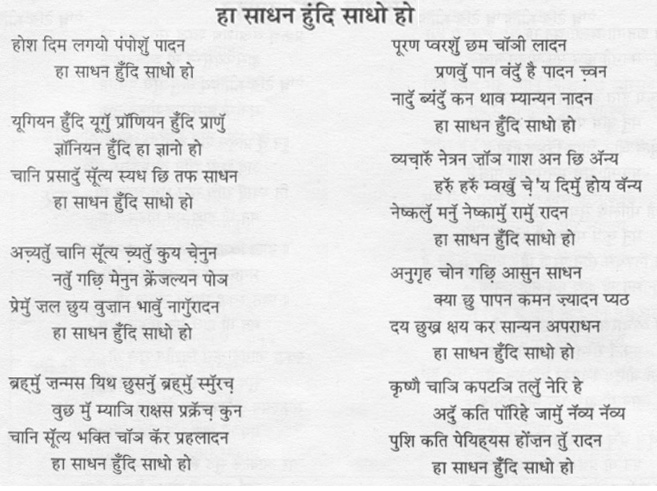 हा साधन हुंदि साधो हो
होश दिम लगयो पंपोशुॅ पादन
हा साधन हुँदि साधो हो
यूगियन हुँदि यूगुॅ प्रॉणियन हुँदि प्राणुॅ
ज्ञॉनियन हुँदि हा ज्ञानो हो
चानि प्रसादुॅ सूॅत्य स्यध छि तफ साधन
हा साधन हुँदि साधो हो
अच़्यतुॅ चानि सूॅत्य च़्यतुॅ कुय चे़नुन
नतुॅ गछि़ मेनुन क्रेंजल्यन पोञ
प्रेमुॅ ज़ल छुय वुज़ान भावुॅ नागुॅरादन
हा साधन हुँदि साधो हो
ब्रह्मुॅ जन्मस यिथ छुसनुॅ ब्रह्मुॅ स्मुॅरच़
वुछ मुॅ म्याञि राक्षस प्रक्रॅच़ कुन
चानि सूॅत्य भक्ति चॉञ कॅर प्रहलादन
हा साधन हुँदि साधो हो
पूरण प्वरशुॅ छम चॉञी लादन
प्रणवुॅ पान वंदुॅ है पादन च़्वन
नादुॅ ब्यंदुॅ कन थाव म्यान्यन नादन
हा साधन हुँदि साधो हो
व्यचा़रुॅ नेत्रन जॉञ गाश अन छि अॅन्य
हरुॅ हरुॅ म्वखुॅ चे़'य दिमुॅ होय वॅन्य
नेष्कलुॅ मनुॅ नेष्कामुॅ रामुॅ रादन
हा साधन हुँदि साधो हो
अनुगृह चोन गछि़ आसुन साधन
क्या छु पापन कमन ज़्यादन प्यठ
दय छुख क्षय कर सान्यन अपराधन
हा साधन हुँदि साधो हो
कृष्णॆ चाञि कपटञि तलुॅ नेरि हे
अदुॅ कति पॉरिहे जामुॅ नॅव्य नॅव्य
पुशि कति पेयिह्यस होंज़न तुॅ रादन
हा साधन हुँदि साधो हो